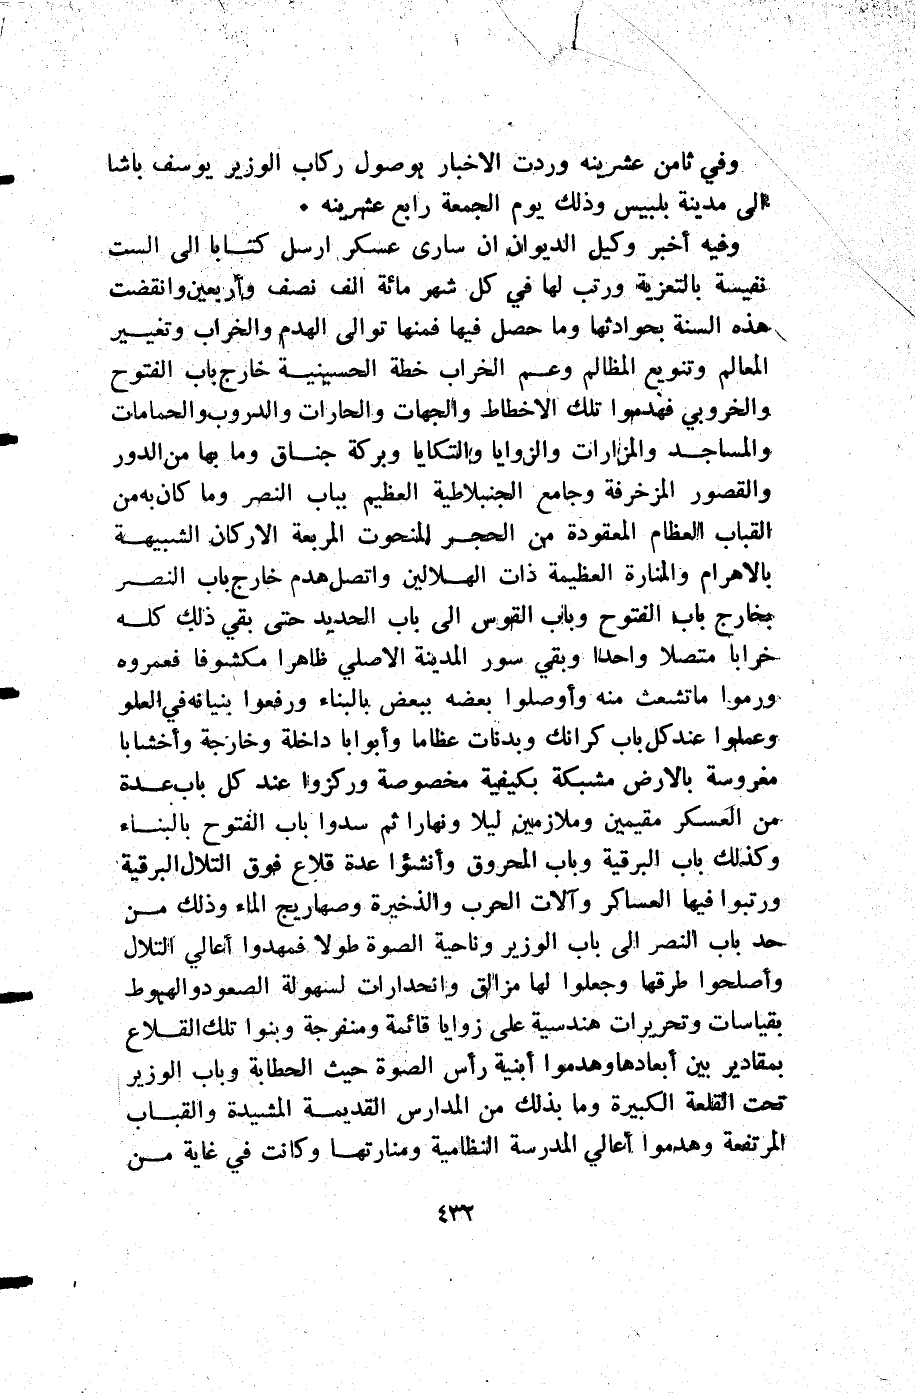 وفي ثامن عشرينه وردت الاخبار بوصول ركاب الوزير يوسف باشا
الى مدينة بلبيس وذلك يوم الجمعة رابع عشرينه •
وفيه أخبر وكيل الديوان ان سارى عسكر ارسل كتــابا الى الست
نفيسة بالتعزية ورتب لها في كل شهر مائة الف نصف وأربعين وانقضت
هذه السنة بحوادثها وما حصل فيها فمنها توالى الهدم والخراب وتغيــير
المعالم وتنويع المظالم وعــم الخراب خطة الحسينيــة خارج باب الفتوح
والخروبي فهدموا تلك الاخطاط والجهات والحارات والدروب والحمامات
والمساجــد والمزارات والزوايا والتكايا وبركة جنــاق وما بها من الدور
والقصور المزخرفة وجامع الجنبلاطية العظيم بباب النصر وما كان به من
القباب العظام المعقودة من الحجــر المنحوت المربعة الاركان الشبيهــة
بالاهرام والمنارة العظيمة ذات الهــلالين واتصل هدم خارج باب النصــر
بخارج باب الفتوح وباب القوس الى باب الحديد حتى بقي ذلك كلــه
خرابا متصلا واحدا وبقي سور المدينة الاصلي ظاهرا مكشوفا فعمروه
ورموا ما تشعث منه وأوصلوا بعضه ببعض بالبناء ورفعوا بنيانه في العلو
وعملوا عند كل باب كرانك وبدنات عظاما وأبوابا داخلة وخارجة وأخشابا
مغروسة بالارض مشبكة بكيفية مخصوصة وركزوا عند كل باب عــدة
من العسكر مقيمين وملازمين ليلا ونهارا ثم سدوا باب الفتوح بالبنــاء
وكذلك باب البرقية وباب المحروق وأنشؤا عدة قلاع فوق التلال البرقية
ورتبوا فيها العساكر وآلات الحرب والذخيرة وصهاريج الماء وذلك مــن
حد باب النصر الى باب الوزير وناحية الصوة طولا فمهدوا أعالي التلال
وأصلحوا طرقها وجعلوا لها مزالق وانحدارات لسهولة الصعود والهبوط
بقياسات وتحريرات هندسية على زوايا قائمة ومنفرجة وبنوا تلك القــلاع
بمقادير بين أبعادها وهدموا أبنية رأس الصوة حيث الحطابة وباب الوزير
تحت القلعة الكبيرة وما بذلك من المدارس القديمــة المشيدة والقبــاب
المرتفعة وهدموا أعالي المدرسة النظامية ومنارتهــا وكانت في غاية مــن
٤٣٢